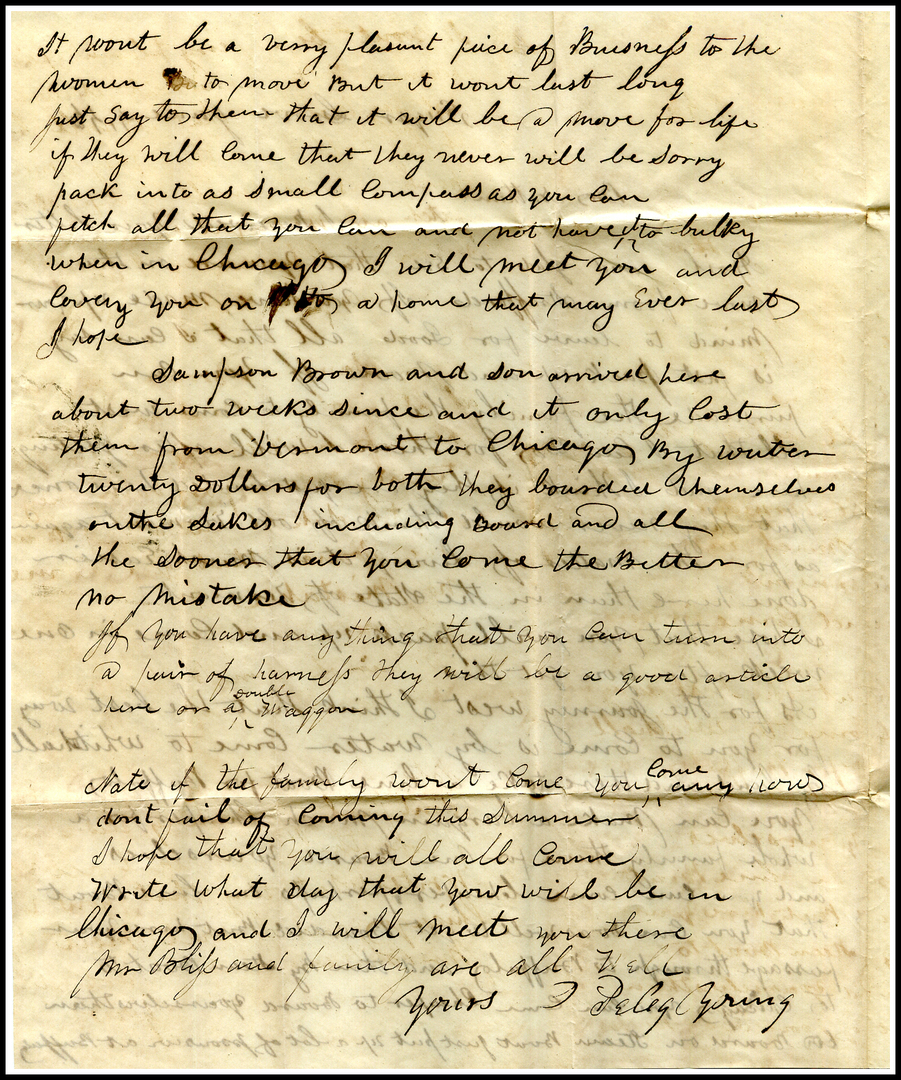 It wont be a verry plasant piece of Buisness to the
women to move But it wont last long
just say to them that it will be a move for life
if they will Come that they never will be sorry
pack into as small Compass as you Can
fetch all that you Can and not have it to bulky
when in Chicago I will meet you and
Convey you on to a home that may Ever last
I hope
Sampson Brown and son arrived here
about two weeks since and it only Cost
them from Vermont to Chicago By water
twenty Dollars for both they boarded themselves
on the Lakes including Board and all
the Sooner that you Come the Better
no Mistake
If you have any thing that you Can turn into
a pair of harness they will be a good article
here or a double Waggon
Note if the family wont Come you Come any how
dont fail of Coming this Summer
I hope that you will all Come
Write what day that you will be in
Chicago and I will meet you there
Mr Bliss and family are all Well
Yours Peleg Young